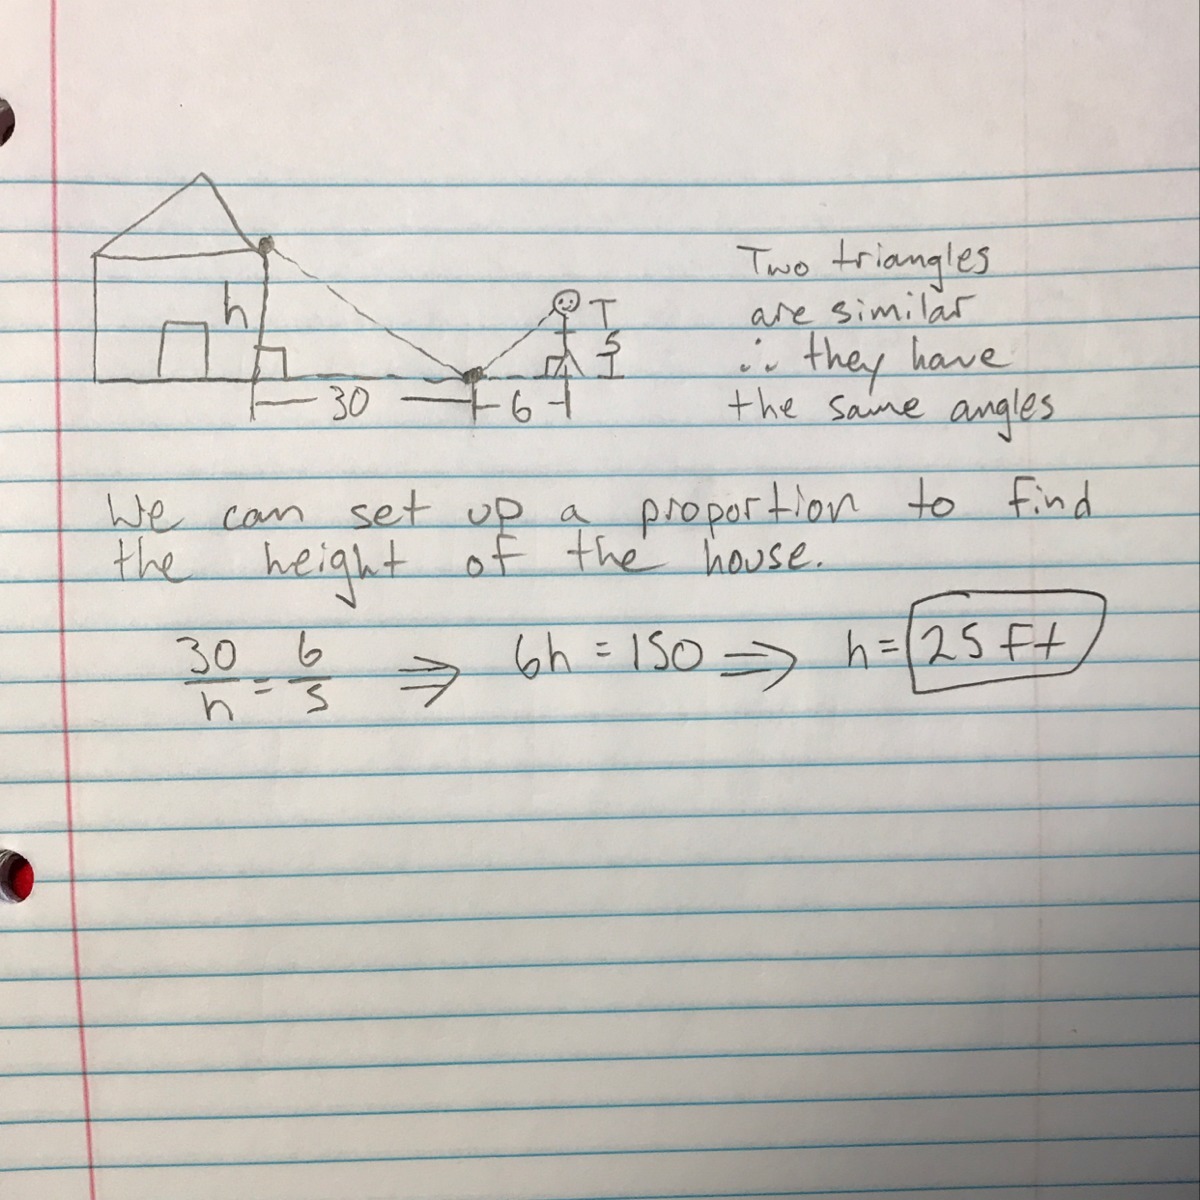 h
T
5
30
6
Two triangles
are similar
∴ they have
the same angles
We can set up a proportion to find
the height of the house.
30/h = 6/5 ⇒ 6h = 150 ⇒ h = 25 ft